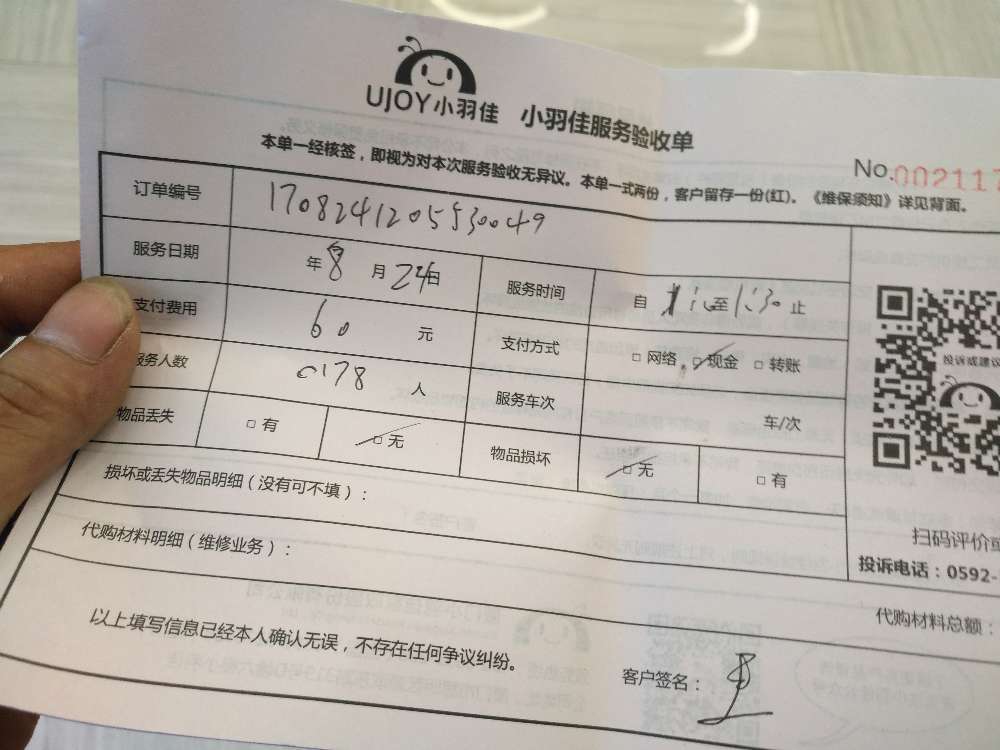 UJOY小羽佳 小羽佳服务验收单
本单一经核签，即视为对本次服务验收无异议。本单一式两份，客户留存一份(红)。《维保须知》详见背面。
No.002117
订单编号 1708241205530049
服务日期 年 8 月 24 日 服务时间 自 至 1:30 止
支付费用 60 元 支付方式 □ 网络 □ 现金 □ 转账
服务人数 0178 人 服务车次 车/次
物品丢失 □ 有 □ 无 物品损坏 □ 无 □ 有
投诉或建议
扫码评价或
投诉电话：0592-
损坏或丢失物品明细（没有可不填）：
代购材料明细（维修业务）：
代购材料总额：
以上填写信息已经本人确认无误，不存在任何争议纠纷。
客户签名：